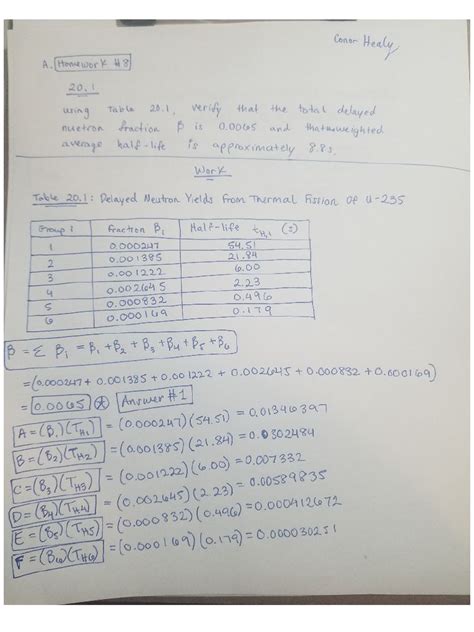 Conor Healy
A. Homework #8
20.1
using Table 20.1, verify that the total delayed
nuetron fraction β is 0.0065 and that weighted
average half-life is approximately 8.8s.
Work
Table 20.1: Delayed Neutron Yields from Thermal Fission of U-235
Group i Fraction βi Half-life tHi (s)
1 0.000247 54.51
2 0.001385 21.84
3 0.001222 6.00
4 0.002645 2.23
5 0.000832 0.496
6 0.000169 0.179
β = Σ βi = β1 + β2 + β3 + β4 + β5 + β6
= (0.000247 + 0.001385 + 0.001222 + 0.002645 + 0.000832 + 0.000169)
= 0.0065 Answer #1
A = (β1)(TH1) = (0.000247)(54.51) = 0.01346397
B = (β2)(TH2) = (0.001385)(21.84) = 0.0302484
C = (β3)(TH3) = (0.001222)(6.00) = 0.007332
D = (β4)(TH4) = (0.002645)(2.23) = 0.00589835
E = (β5)(TH5) = (0.000832)(0.496) = 0.000412672
F = (β6)(TH6) = (0.000169)(0.179) = 0.000030251